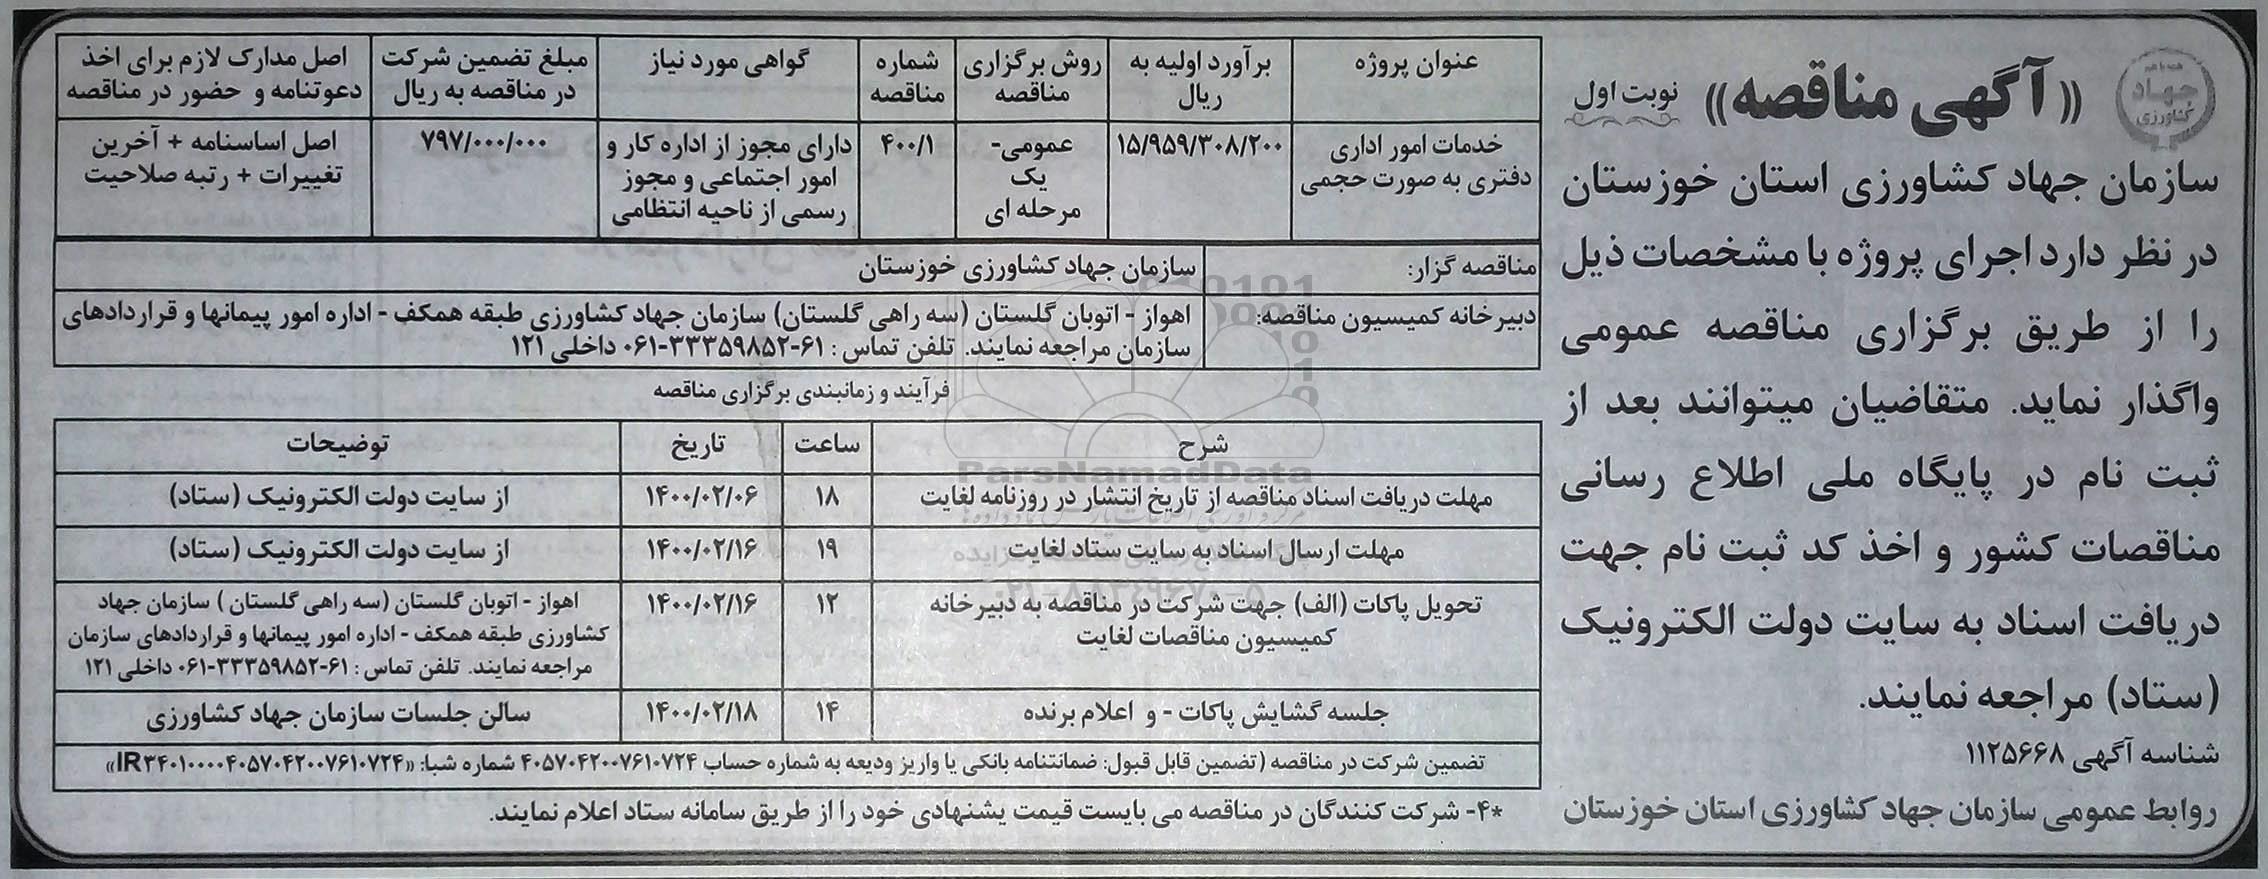 جهاد
کشاورزی
«آگهی مناقصه» نوبت اول
سازمان جهاد کشاورزی استان خوزستان
در نظر دارد اجرای پروژه با مشخصات ذیل
را از طریق برگزاری مناقصه عمومی
واگذار نماید. متقاضیان میتوانند بعد از
ثبت نام در پایگاه ملی اطلاع رسانی
مناقصات کشور و اخذ کد ثبت نام جهت
دریافت اسناد به سایت دولت الکترونیک
(ستاد) مراجعه نمایند.
شناسه آگهی ۱۱۲۵۶۶۸
روابط عمومی سازمان جهاد کشاورزی استان خوزستان
عنوان پروژه
برآورد اولیه به
ریال
روش برگزاری
مناقصه
شماره
مناقصه
گواهی مورد نیاز
مبلغ تضمین شرکت
در مناقصه به ریال
اصل مدارک لازم برای اخذ
دعوتنامه و حضور در مناقصه
خدمات امور اداری
دفتری به صورت حجمی
۱۵/۹۵۹/۳۰۸/۲۰۰
عمومی-
یک
مرحله ای
۴۰۰/۱
دارای مجوز از اداره کار و
امور اجتماعی و مجوز
رسمی از ناحیه انتظامی
۷۹۷/۰۰۰/۰۰۰
اصل اساسنامه + آخرین
تغییرات + رتبه صلاحیت
مناقصه گزار:
سازمان جهاد کشاورزی خوزستان
دبیرخانه کمیسیون مناقصه:
اهواز - اتوبان گلستان (سه راهی گلستان) سازمان جهاد کشاورزی طبقه همکف - اداره امور پیمانها و قراردادهای
سازمان مراجعه نمایند. تلفن تماس : ۶۱-۳۳۳۵۹۸۵۲-۰۶۱ داخلی ۱۲۱
فرآیند و زمانبندی برگزاری مناقصه
شرح
ساعت
تاریخ
توضیحات
مهلت دریافت اسناد مناقصه از تاریخ انتشار در روزنامه لغایت
۱۸
۱۴۰۰/۰۲/۰۶
از سایت دولت الکترونیک (ستاد)
مهلت ارسال اسناد به سایت ستاد لغایت
۱۹
۱۴۰۰/۰۲/۱۶
از سایت دولت الکترونیک (ستاد)
تحویل پاکات (الف) جهت شرکت در مناقصه به دبیرخانه
کمیسیون مناقصات لغایت
۱۲
۱۴۰۰/۰۲/۱۶
اهواز - اتوبان گلستان (سه راهی گلستان ) سازمان جهاد
کشاورزی طبقه همکف - اداره امور پیمانها و قراردادهای سازمان
مراجعه نمایند. تلفن تماس : ۶۱-۳۳۳۵۹۸۵۲-۰۶۱ داخلی ۱۲۱
جلسه گشایش پاکات - و اعلام برنده
۱۴
۱۴۰۰/۰۲/۱۸
سالن جلسات سازمان جهاد کشاورزی
تضمین شرکت در مناقصه (تضمین قابل قبول: ضمانتنامه بانکی یا واریز ودیعه به شماره حساب ۴۰۵۷۰۴۲۰۰۷۶۱۰۷۲۴ شماره شبا: «IR۳۴۰۱۰۰۰۰۴۰۵۷۰۴۲۰۰۷۶۱۰۷۲۴»
*۴- شرکت کنندگان در مناقصه می بایست قیمت پیشنهادی خود را از طریق سامانه ستاد اعلام نمایند.
ParsNamadData
۰۲۱-۸۸۳۴۹۶۷۰-۵